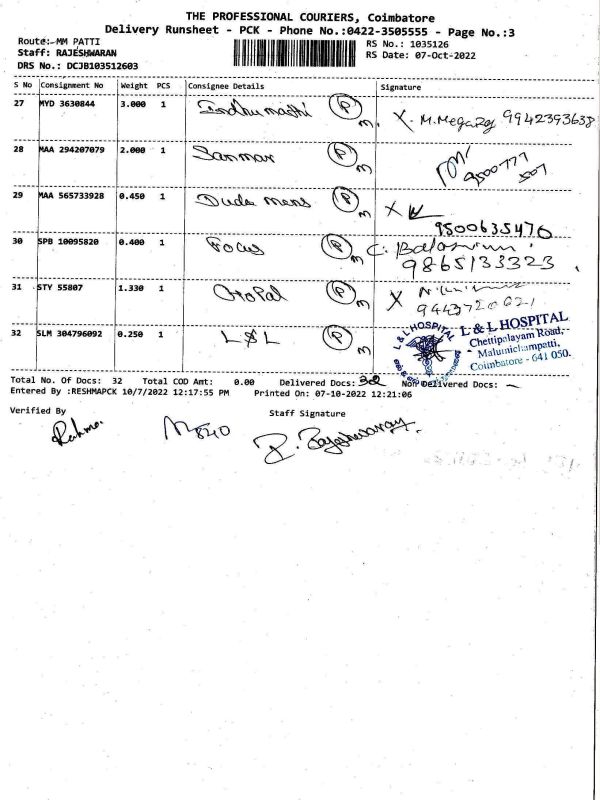 THE PROFESSIONAL COURIERS, Coimbatore
Delivery Runsheet - PCK - Phone No.:0422-3505555 - Page No.:3
Route:- MM PATTI
Staff: RAJESHWARAN
DRS No.: DCJB103512603
RS No.: 1035126
RS Date: 07-Oct-2022
S No Consignment No Weight PCS Consignee Details Signature
27 MYD 3630844 3.000 1 Indhumathi P m X. M.Megaraj 9942393638
28 MAA 294207079 2.000 1 Sanmar P m 9500777
507
29 MAA 565733928 0.450 1 Duda mens P m X
9500635470
30 SPB 10095820 0.400 1 Focus P m C.
9865133323
31 STY 55807 1.330 1 Oropal P m X
32 SLM 304796092 0.250 1 L & L P m
L & L HOSPITAL
L & L HOSPITAL
Chettipalayam Road,
Malumichampatti,
Coimbatore - 641 050.
Total No. Of Docs: 32 Total COD Amt: 0.00 Delivered Docs: 32 Non Delivered Docs: -
Entered By :RESHMAPCK 10/7/2022 12:17:55 PM Printed On: 07-10-2022 12:21:06
Verified By Staff Signature